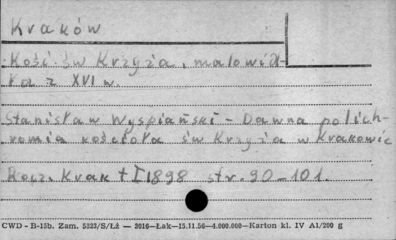 Kraków
Kość. św Krzyża, malowid-
ła z XVI w.
Stanisław Wyspiański - Dawna polich-
romia kościoła św Krzyża w Krakowie
Rocz. Krak t I 1898 str. 90-101.
CWD - B-15b. Zam. 5323/S/Łż — 2016—Łak—15.11.56—4.000.000—Karton kl. IV A1/200 g